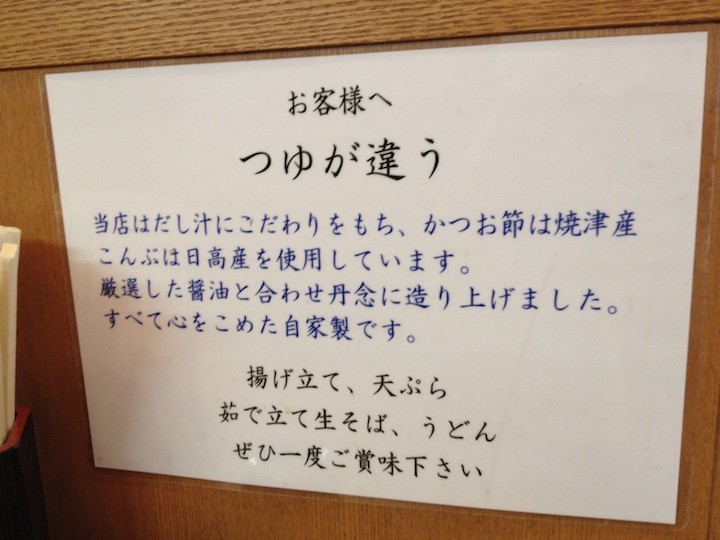 お客様へ
つゆが違う
当店はだし汁にこだわりをもち、かつお節は焼津産
こんぶは日高産を使用しています。
厳選した醤油と合わせ丹念に造り上げました。
すべて心をこめた自家製です。
揚げ立て、天ぷら
茹で立て生そば、うどん
ぜひ一度ご賞味下さい